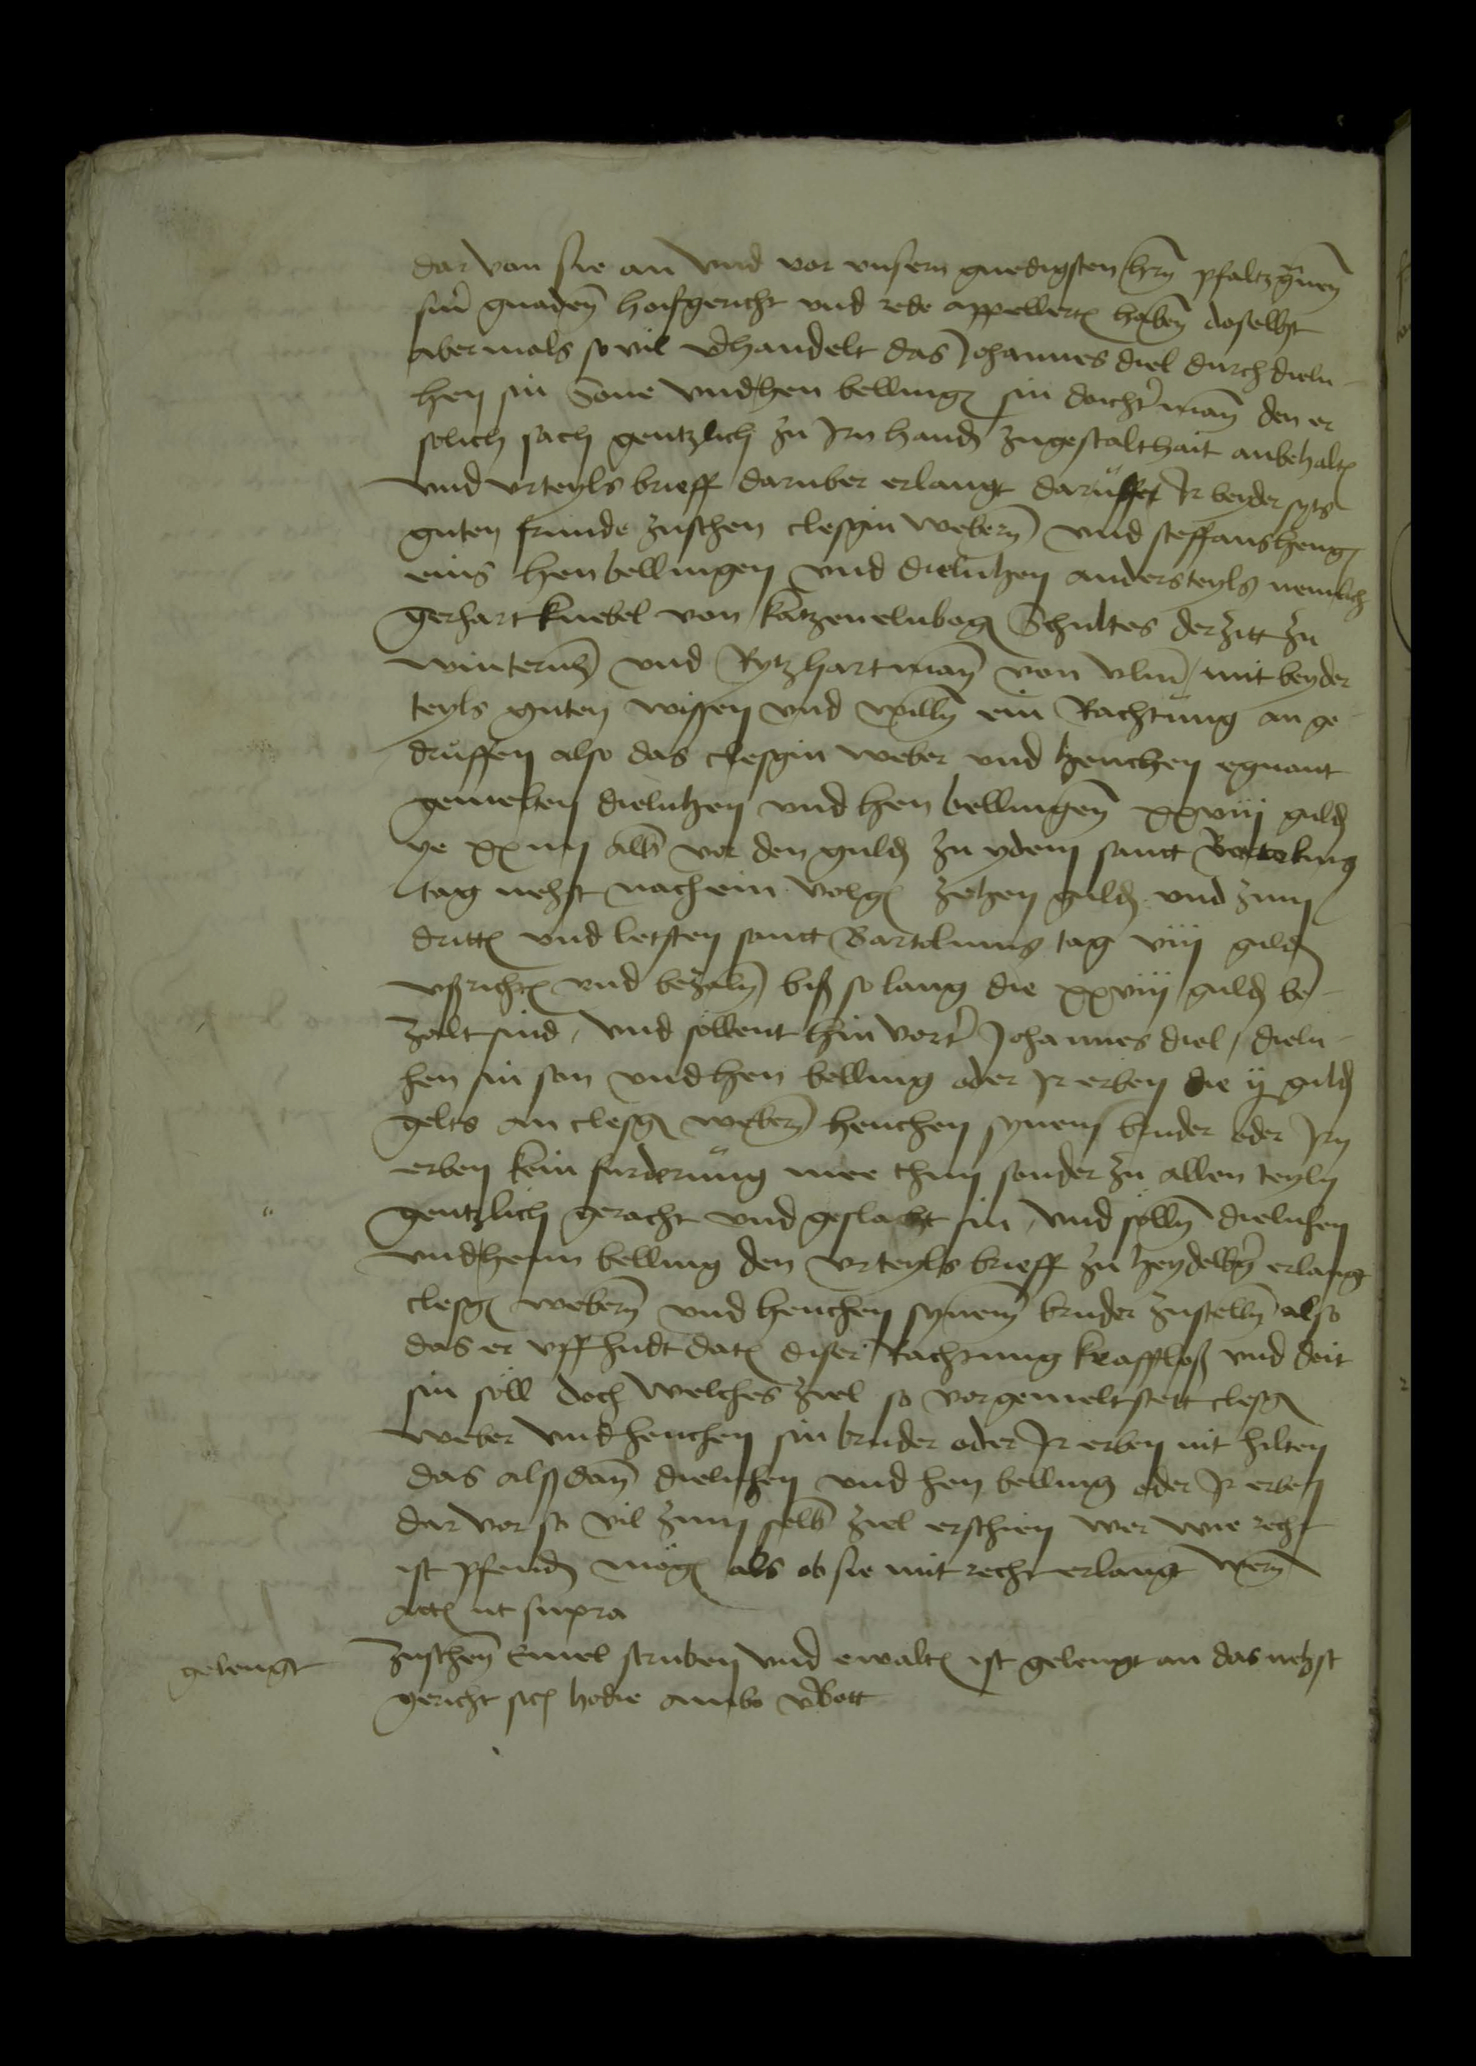 dar von sie an vnd vor vnsern gnedigsten hern pfaltzgrauen
siner gnaden hoifgericht vnd rede appellert haben doselbst
abermals so vil verhandelt das Johannes diel durch dieln-
hen sin Sone vnd hen belling sin dochterman den er
solich sach gentzlich zu Irn hand zugestalt hait anbehalt
vnd vrteyls brieff daruber erlangt daruff Ir beyder syts
guten frunde zuschen clesgin webern vnd steffanshengin
eins hen bellingen vnd dielnhen andersteyls nemlich
gerhart knebel von katzenelnbog Schultes der zitt zu
winternh vnd Rytz hartman von vlm mit beyder
teyls guten wissen vnd willen ein Rachtung an ge-
druffen also das clesgin weber vnd henchen egnant
gemelten dielnhen vnd hen bellingen xxviij guld
ye xxiiij alb vor den guld zu ydem sanct Bartolmes
tag nehst nach ein volg zehen guld vnd zum
dritt vnd letsten sanct Bartolmus tag viij guld
vßricht vnd bezaln biß so lang die xxviij guld be-
zalt sind, vnd sollent hin vorter Johannes diel, dieln-
hen sin son vnd hen belling oder Ir erben die ij guld
gelts an clesg webern henchen synem bruder oder Irn
erben kein furderung mee thun sonder zu allen teyln
gentzlich geracht vnd geslacht sin, vnd solln dielnhen
vnd henn belling den vrteyls brieff zu heydelberg erlangt
clesg webern vnd henchen synem bruder zustelln also
das er vff hudt dat diser Rachtung krafftloß vnd doit
sin soll doch welches ziel so vorgemelt stett clesg
weber vnd henchen sin bruder oder Ir erben nit hilten
das alßdan dielnhen vnd hen belling oder Ir erben
dar vor so vil zum selb ziel erschien wer wie recht
ist pfend mog als ob sie mit recht erlangt wern
act ut supra
zuschen Emel struben vnd ewalt ist gelengt an das nehst
gericht sic hodie ambo verbott
gelengt